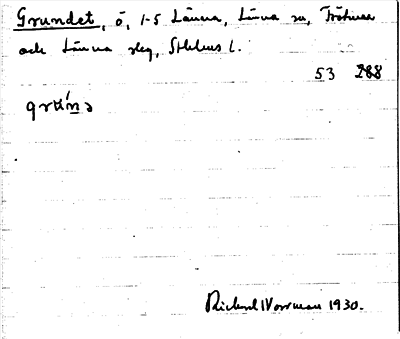 Grundet, ö, 1-5 Länna, Länna sn, Frötuna
och Länna slg, Sthlms l.
53 288
Rickard Norrman 1930.